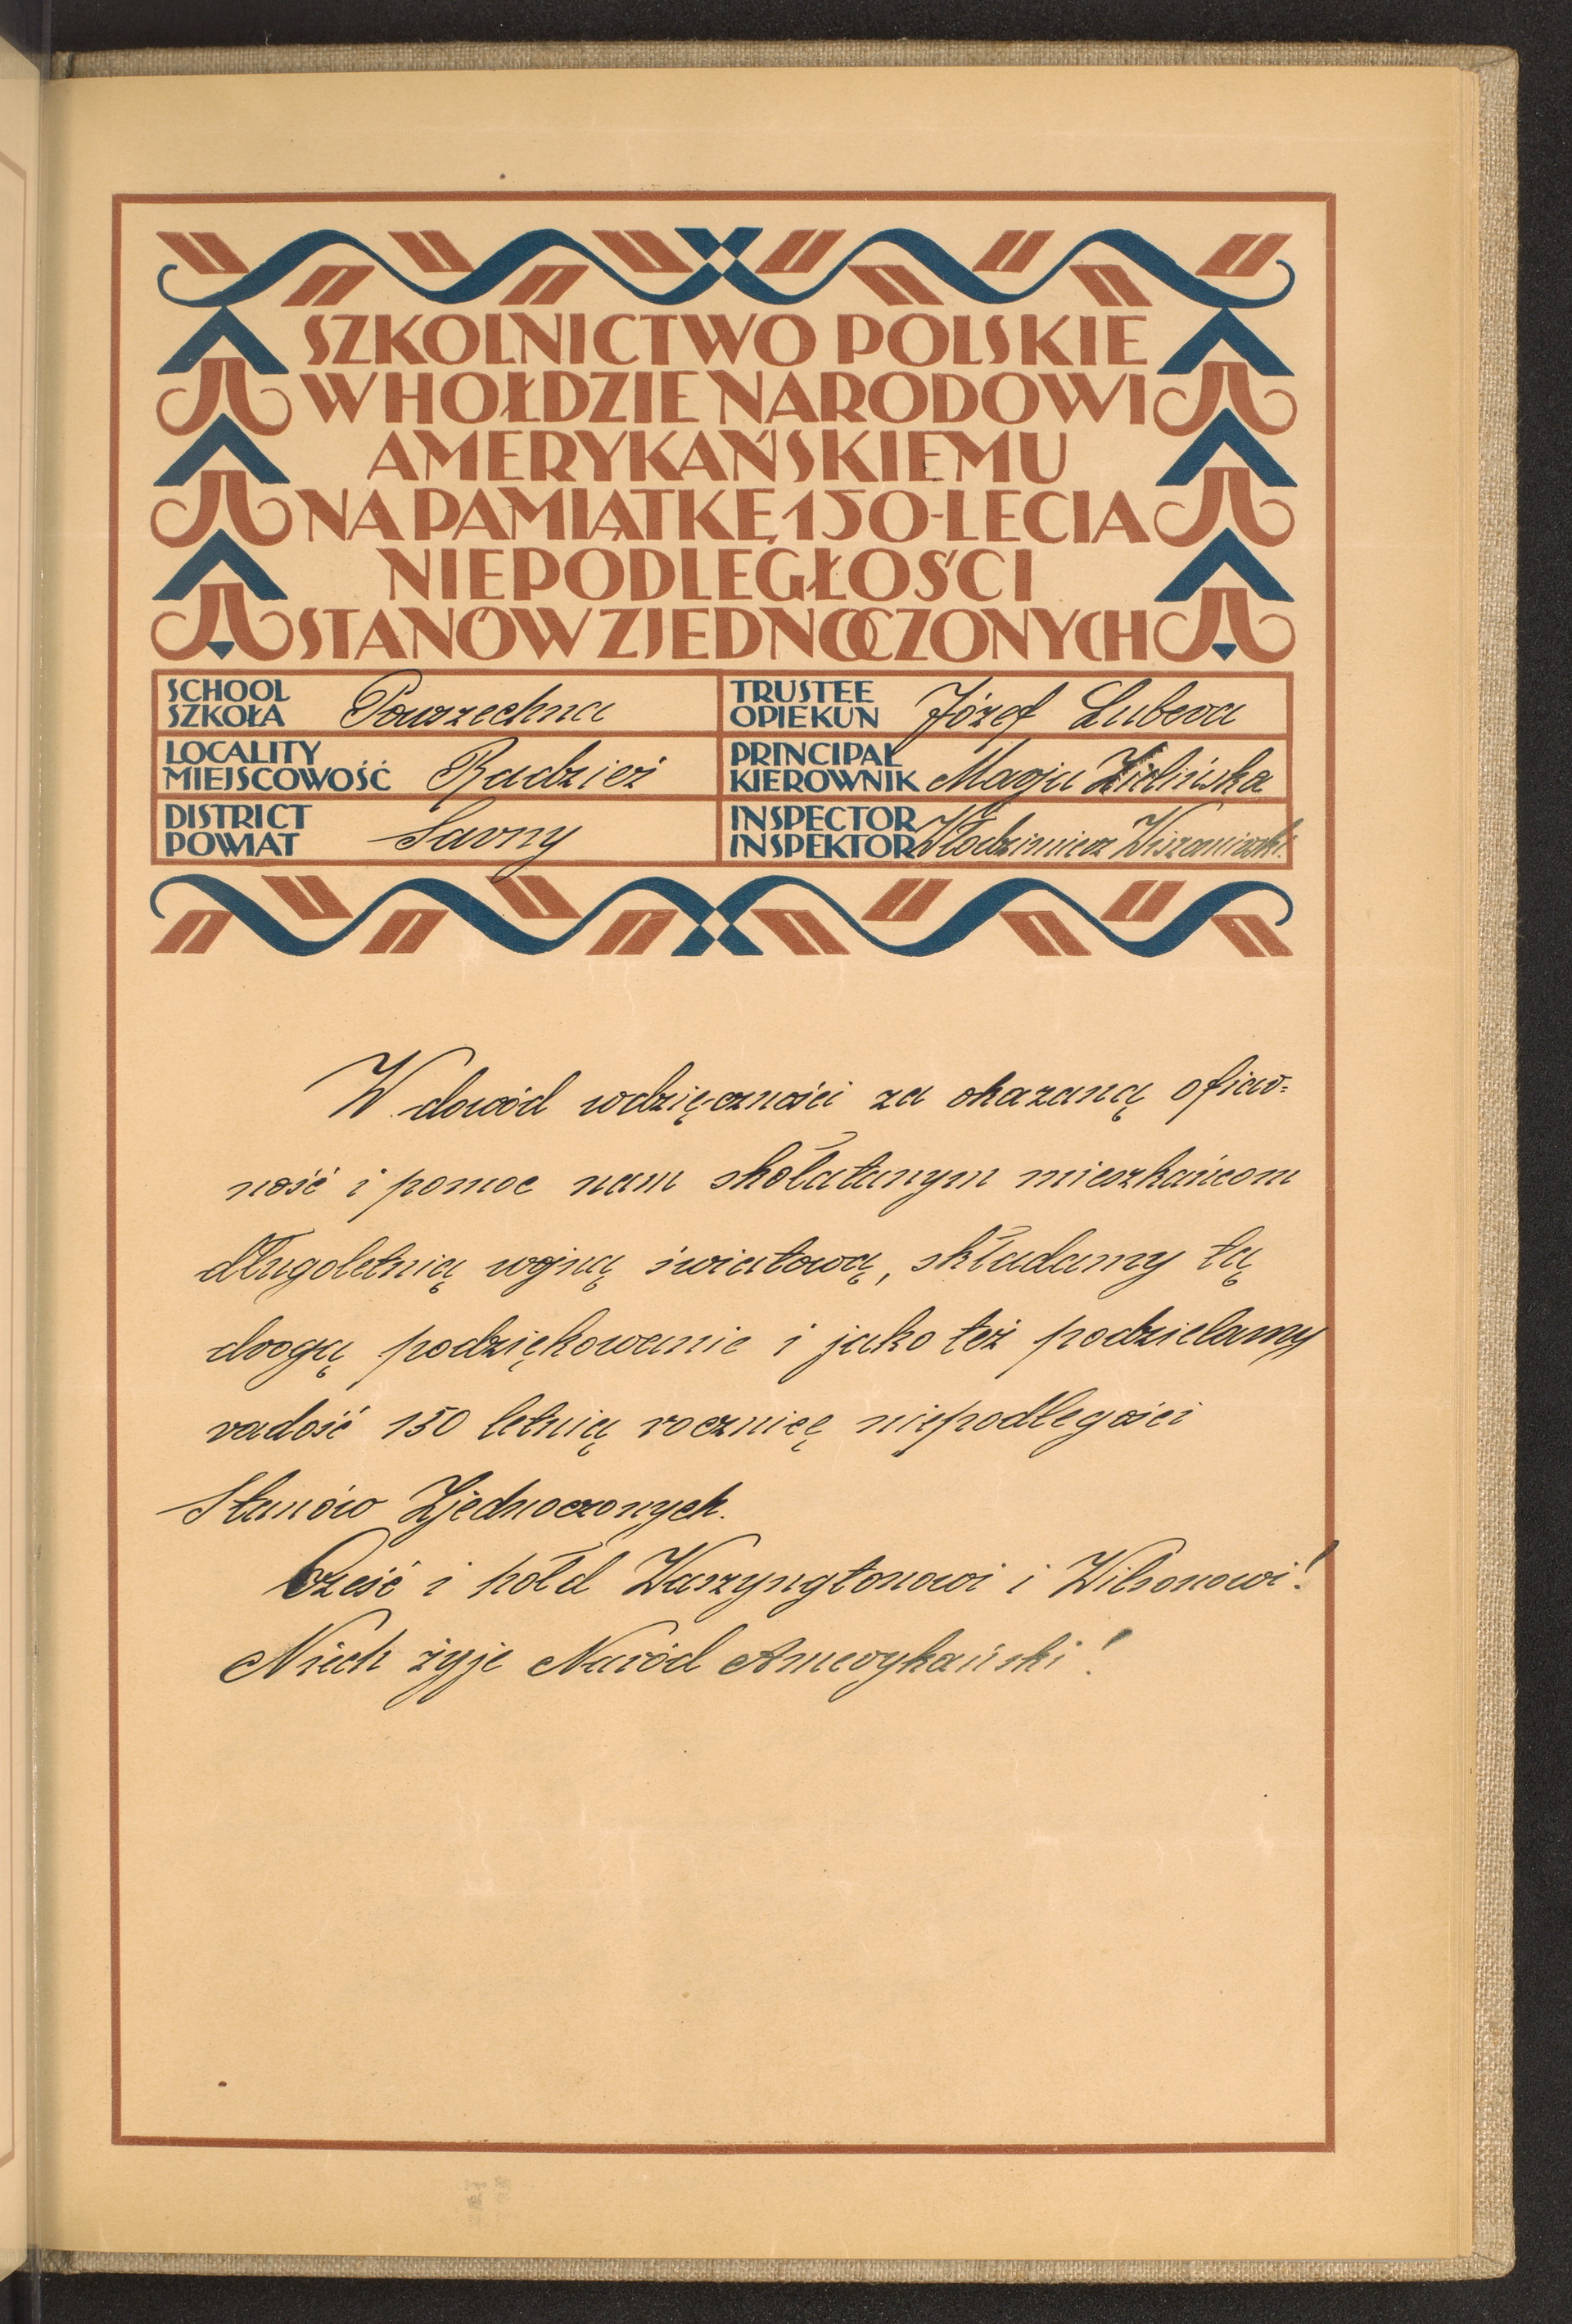 SZKOLNICTWO POLSKIE
W HOŁDZIE NARODOWI
AMERYKAŃSKIEMU
NA PAMIĄTKĘ 150-LECIA
NIEPODLEGŁOŚCI
STANÓW ZJEDNOCZONYCH
SCHOOL
SZKOŁA Powszechna
TRUSTEE
OPIEKUN Józef Lubera
LOCALITY
MIEJSCOWOŚĆ Radzież
PRINCIPAŁ
KIEROWNIK Marja Zielińska
DISTRICT
POWIAT Sarny
INSPECTOR
INSPEKTOR Włodzimierz
W dowód wdzięczności za okazaną ofiar=
ność i pomoc nam skołatanym mieszkańcom
długoletnią wojną światową, składamy tą
drogą podziękowanie i jako też podzielamy
radość 150 letnią rocznicę niepodległości
Stanów Zjednoczonych.
Cześć i hołd Waszyngtonowi i Wilsonowi!
Niech żyje Naród Amerykański!